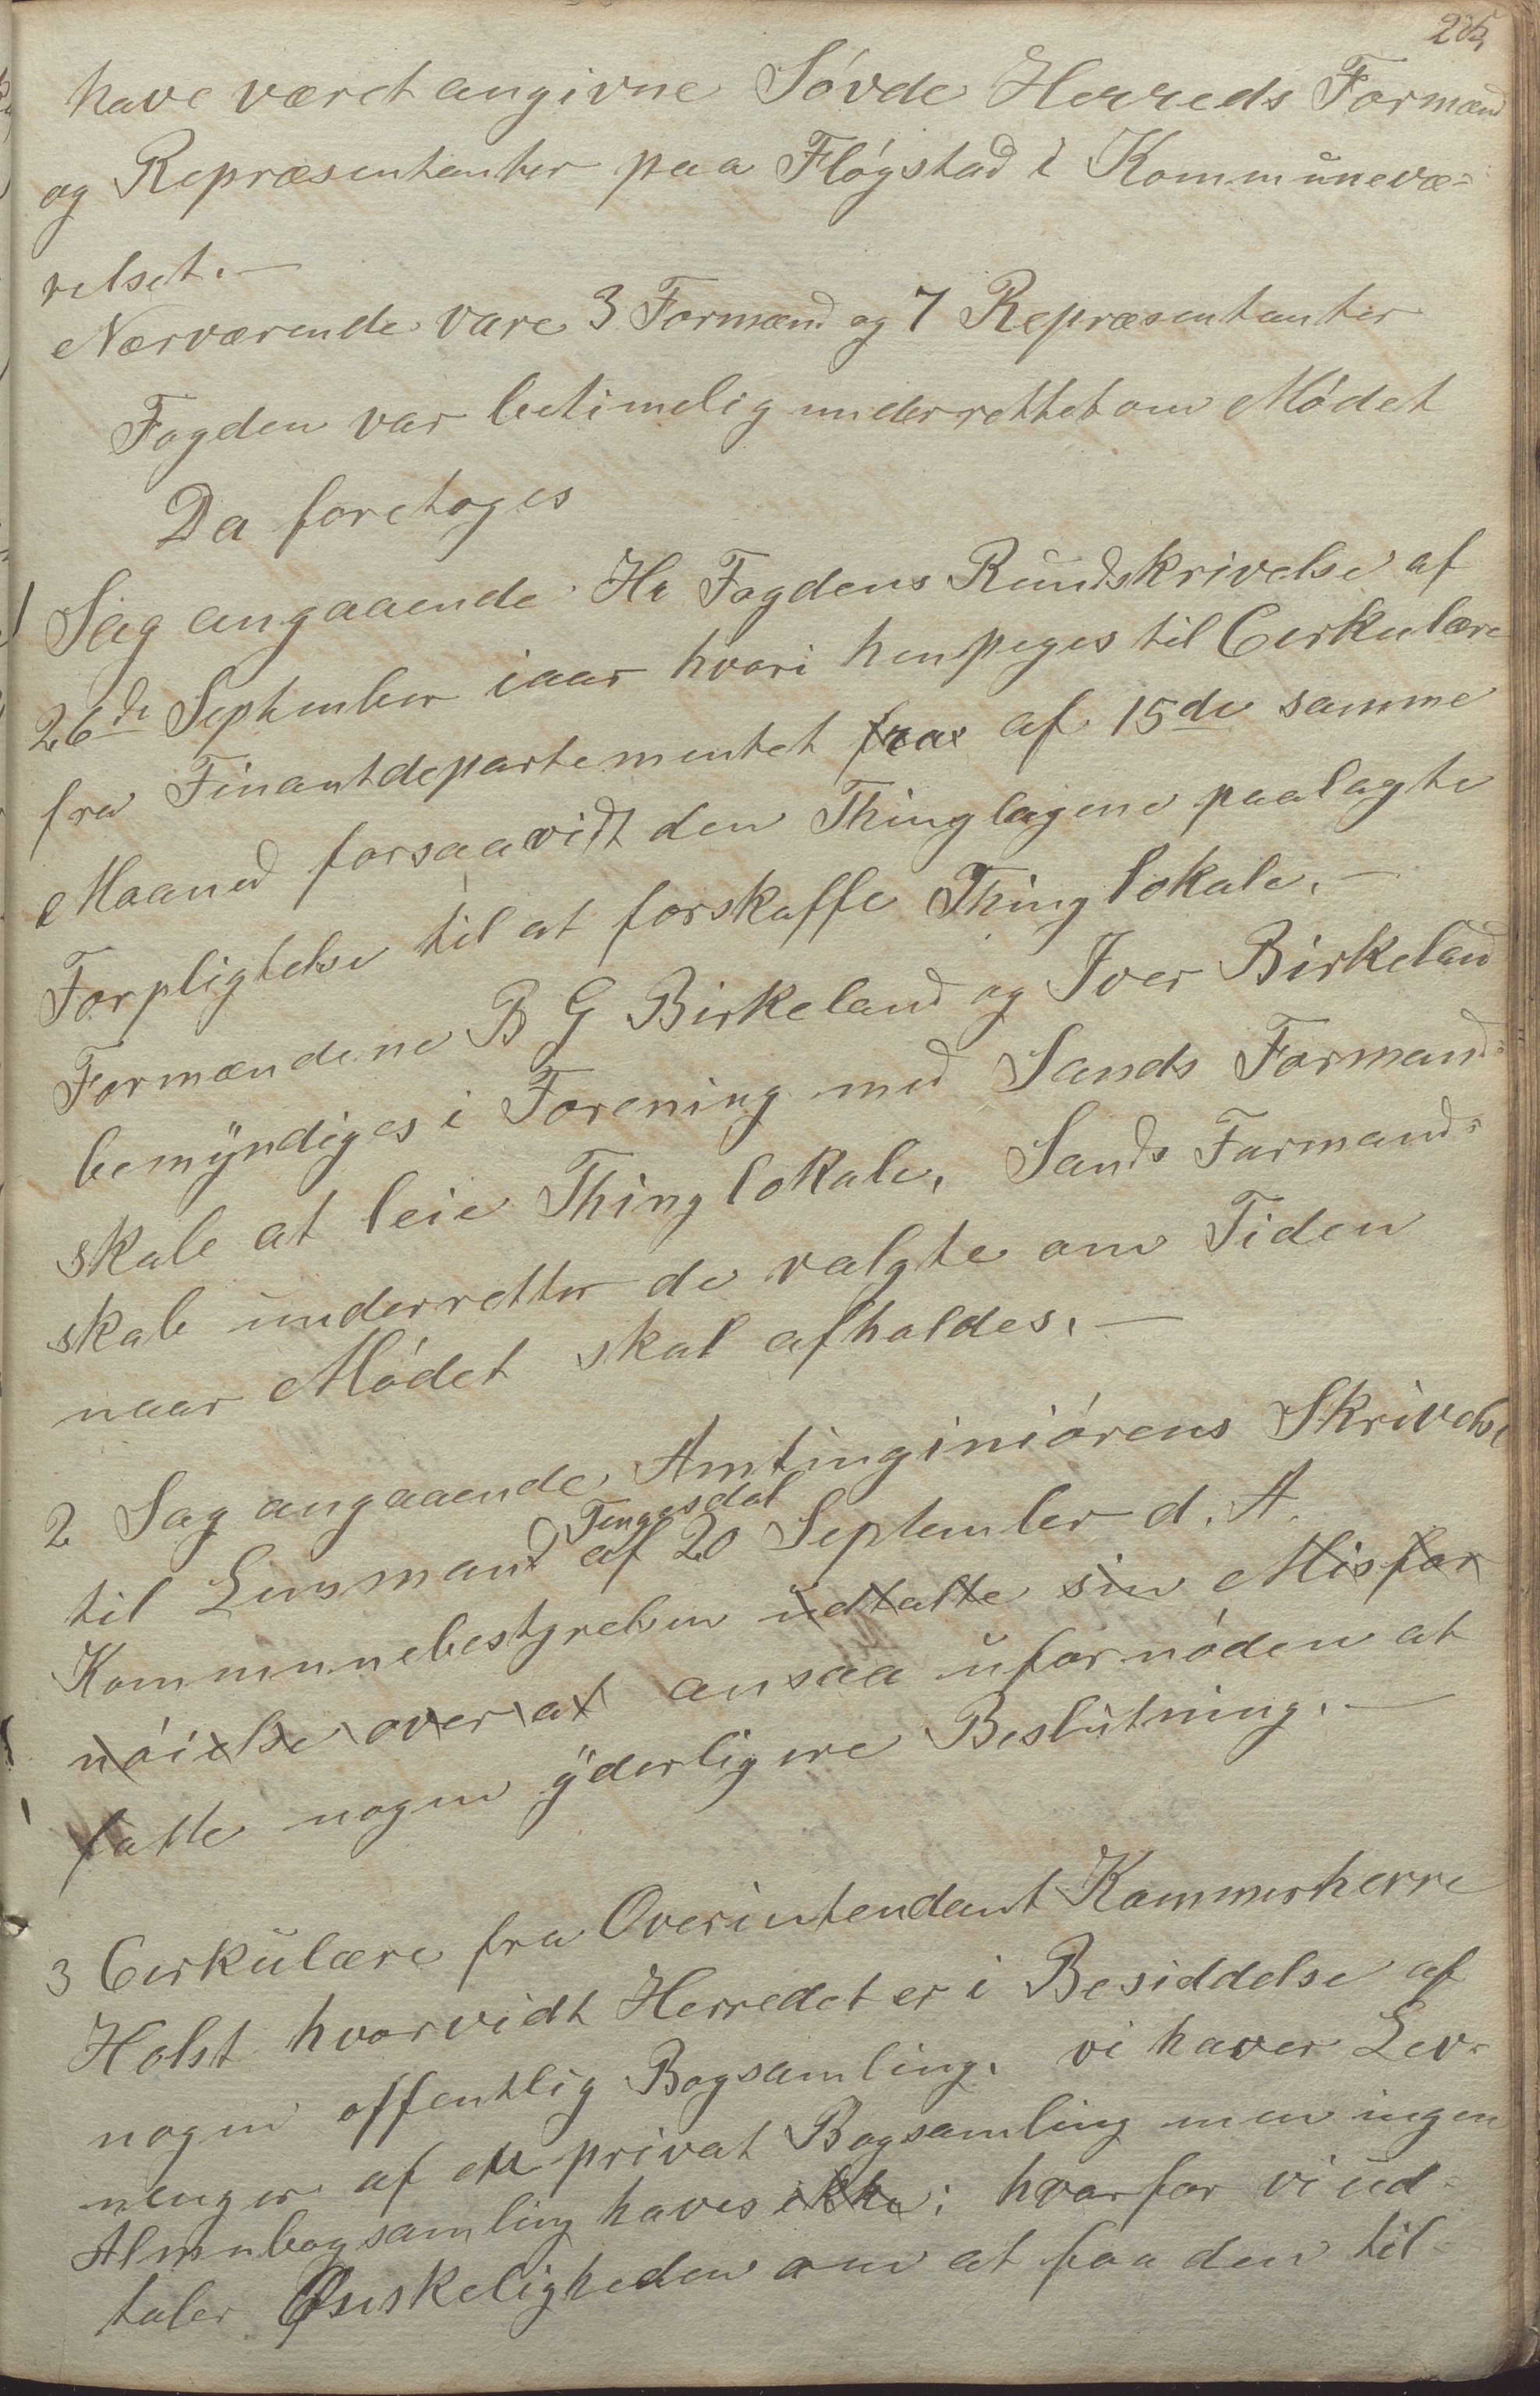 have været angivne Søvde Herreds Formænd
og Repræsentanter paa Fløgstad i Kommunevæ-
relset. —
Nærværende vare 3 Formænd og 7 Repræsentanter
Fogden var betimelig underrettet om Mødet
Da foretoges
1 Sag angaaende Hr Fogdens Rundskrivelse af
26de September iaar hvori henpeges til Cirkulære
fra Finantdepartementet fra af 15de samme
Maaned forsaavidt den Thinglagene paalagte
Forpligtelse til at forskaffe Thinglokale. —
Formændene B G Birkeland og Iver Birkeland
bemÿndiges i Forening med Sands Formand-
skab at leie Thinglokale, Sands Formand-
skab underretter de valgte om Tiden
naar Mødet skal afholdes. —
2 Sag angaaende Amtinginiørens Skrivelse
Tengesdal
til Lensmand af 20 September d. A.
Kommunebestyrelsen udtalte sin Misfor
nøielse over at ansaa ufornøden at
fatte nogen ÿderligere Beslutning. —
3 Cirkulære fra Overintendant Kammerherre
Holst hvorvidt Herredet er i Besiddelse af
nogen offentlig Bogsamling. vi haver Lev-
ninger af en privat Bogsamling men ingen
Almubogsamling haves ikke; hvorfor vi ud-
taler Ønskeligheden om at faa den til-